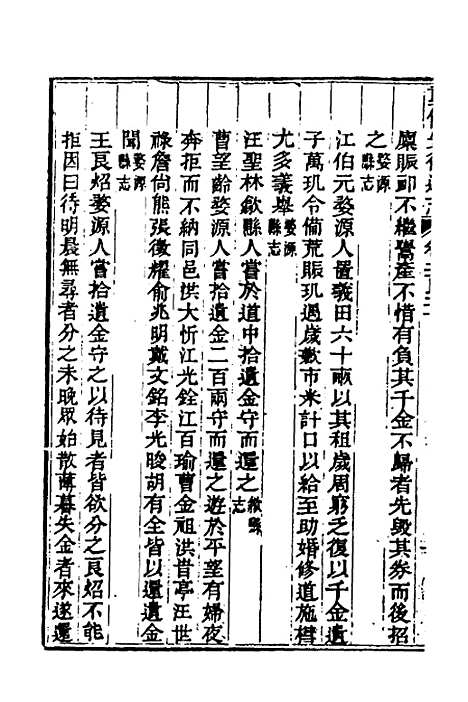 廩賑卹不繼鬻產不惜有負其千金不歸者先毀其券而後招
之婺源縣志
江伯元婺源人置義田六十畝以其租歲周窮乏復以千金遺
子萬璣令備荒賑璣遇歲歉市米計口以給至助婚修道施槥
尤多義舉婺源縣志
汪聖林歙縣人嘗於道中拾遺金守而還之歙縣志
曹望齡婺源人嘗拾遺金二百兩守而還之遊於平望有婦夜
奔拒而不納同邑洪大忻江光銓江百瑜曹金祖洪昔亭汪世
祿詹尙熊張從耀俞兆明戴文銘李光晙胡有全皆以還遺金
聞婺源縣志
王良炤婺源人嘗拾遺金守之以待見者皆欲分之良炤不能
拒因曰待明晨無尋者分之未晚眾始散薄暮失金者來遂還